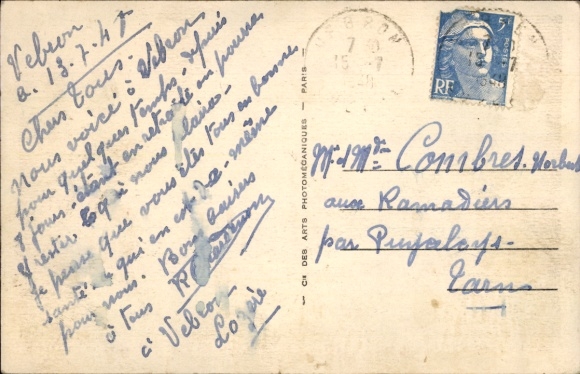 Vebron
a. 13.7.4
Chers Tous.
nous voici à Vebron
pour quelques temps. depuis
8 jours. étant en retraite on pourra
y rester ce qui nous plaira.
je pense que vous êtes tous en bonne
santé. ce qui en est de même
pour nous. Bons baisers
à tous
à Vebron
Lozère
Cie DES ARTS PHOTOMÉCANIQUES - PARIS
VEBRON
15-7
RF
5F
POSTES
Mr et Mme Combres
aux Ramadiers
par Puycelcy-
Tarn